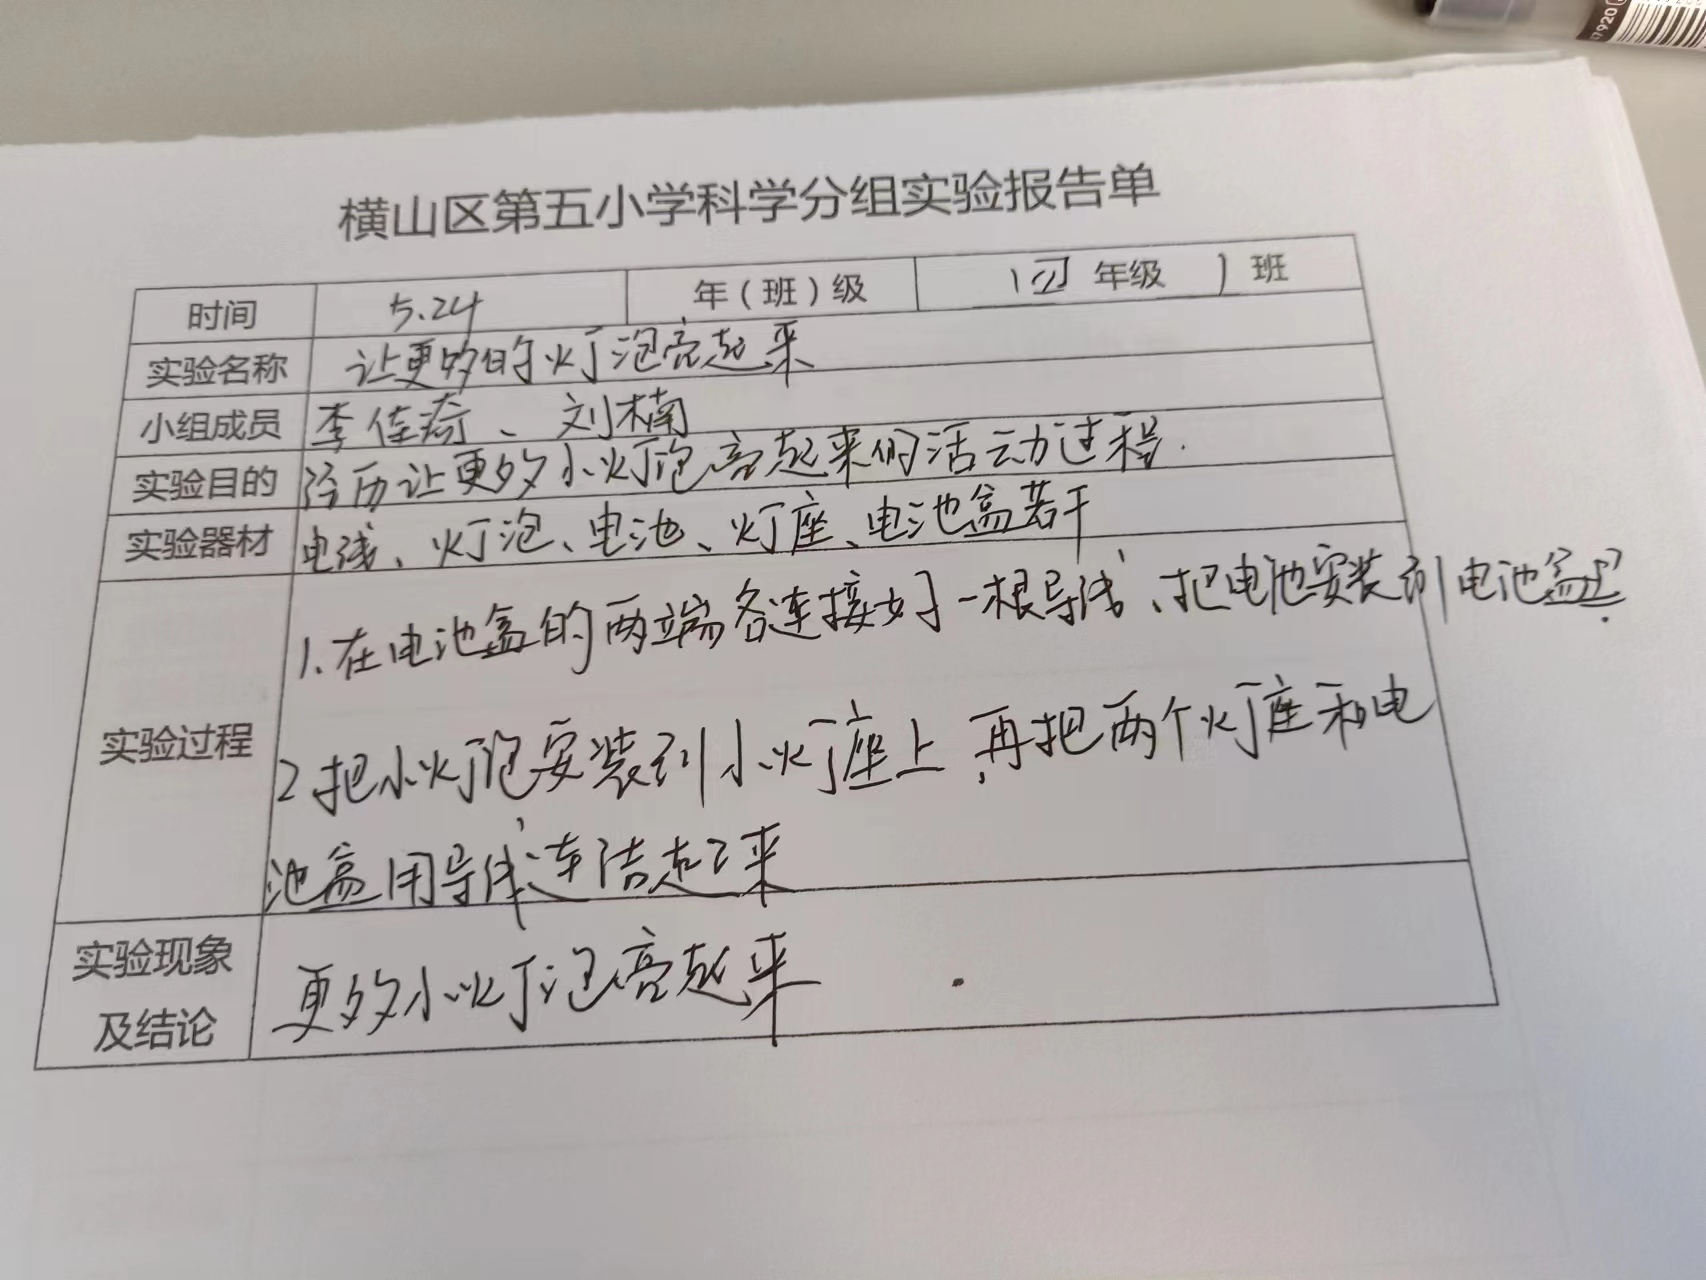 横山区第五小学科学分组实验报告单
时间 5.24 年（班）级 四 年级 1 班
实验名称 让更多的灯泡亮起来
小组成员 李佳琦、刘楠
实验目的 经历让更多小灯泡亮起来的活动过程.
实验器材 电线、灯泡、电池、灯座、电池盒若干
1.在电池盒的两端各连接好一根导线、把电池安装到电池盒
实验过程 2.把小灯泡安装到小灯座上,再把两个灯座和电
池盒用导线连结起来
实验现象
及结论 更多小灯泡亮起来
47920